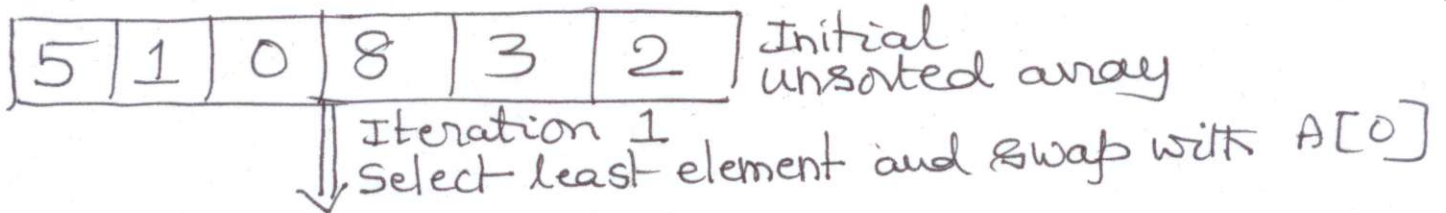 5 1 0 8 3 2 Initial
unsorted array
Iteration 1
Select least element and swap with A[0]